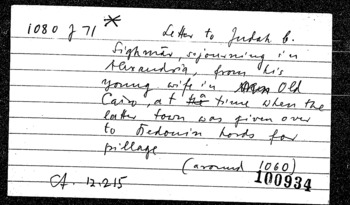 1080 J 71 *
Letter to Judah b.
Sighmār, sojourning in
Alexandria, from his
young wife in Old
Cairo, at time when the
latter town was given over
to Bedouin hords for
pillage
(around 1060)
100934
Cf. 12.215